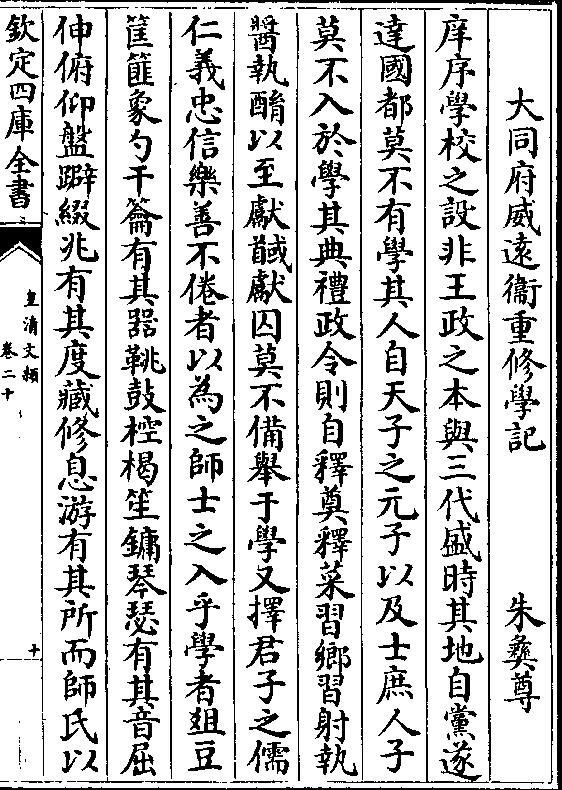 大同府威遠衞重修學記　　朱彝尊
庠序學校之設非王政之本與三代盛時其地自黨遂
達國都莫不有學其人自天子之元子以及士庶人子
莫不入於學其典禮政令則自釋奠釋菜習鄉習射執
醬執酳以至獻馘獻囚莫不備舉于學又擇君子之儒
仁義忠信樂善不倦者以為之師士之入乎學者俎豆
筐篚象勺干籥有其器鞉鼓椌楬笙鏞琴瑟有其音屈
伸俯仰盤躃綴兆有其度藏修息游有其所而師氏以
欽定四庫全書
皇清文穎
卷二十
十